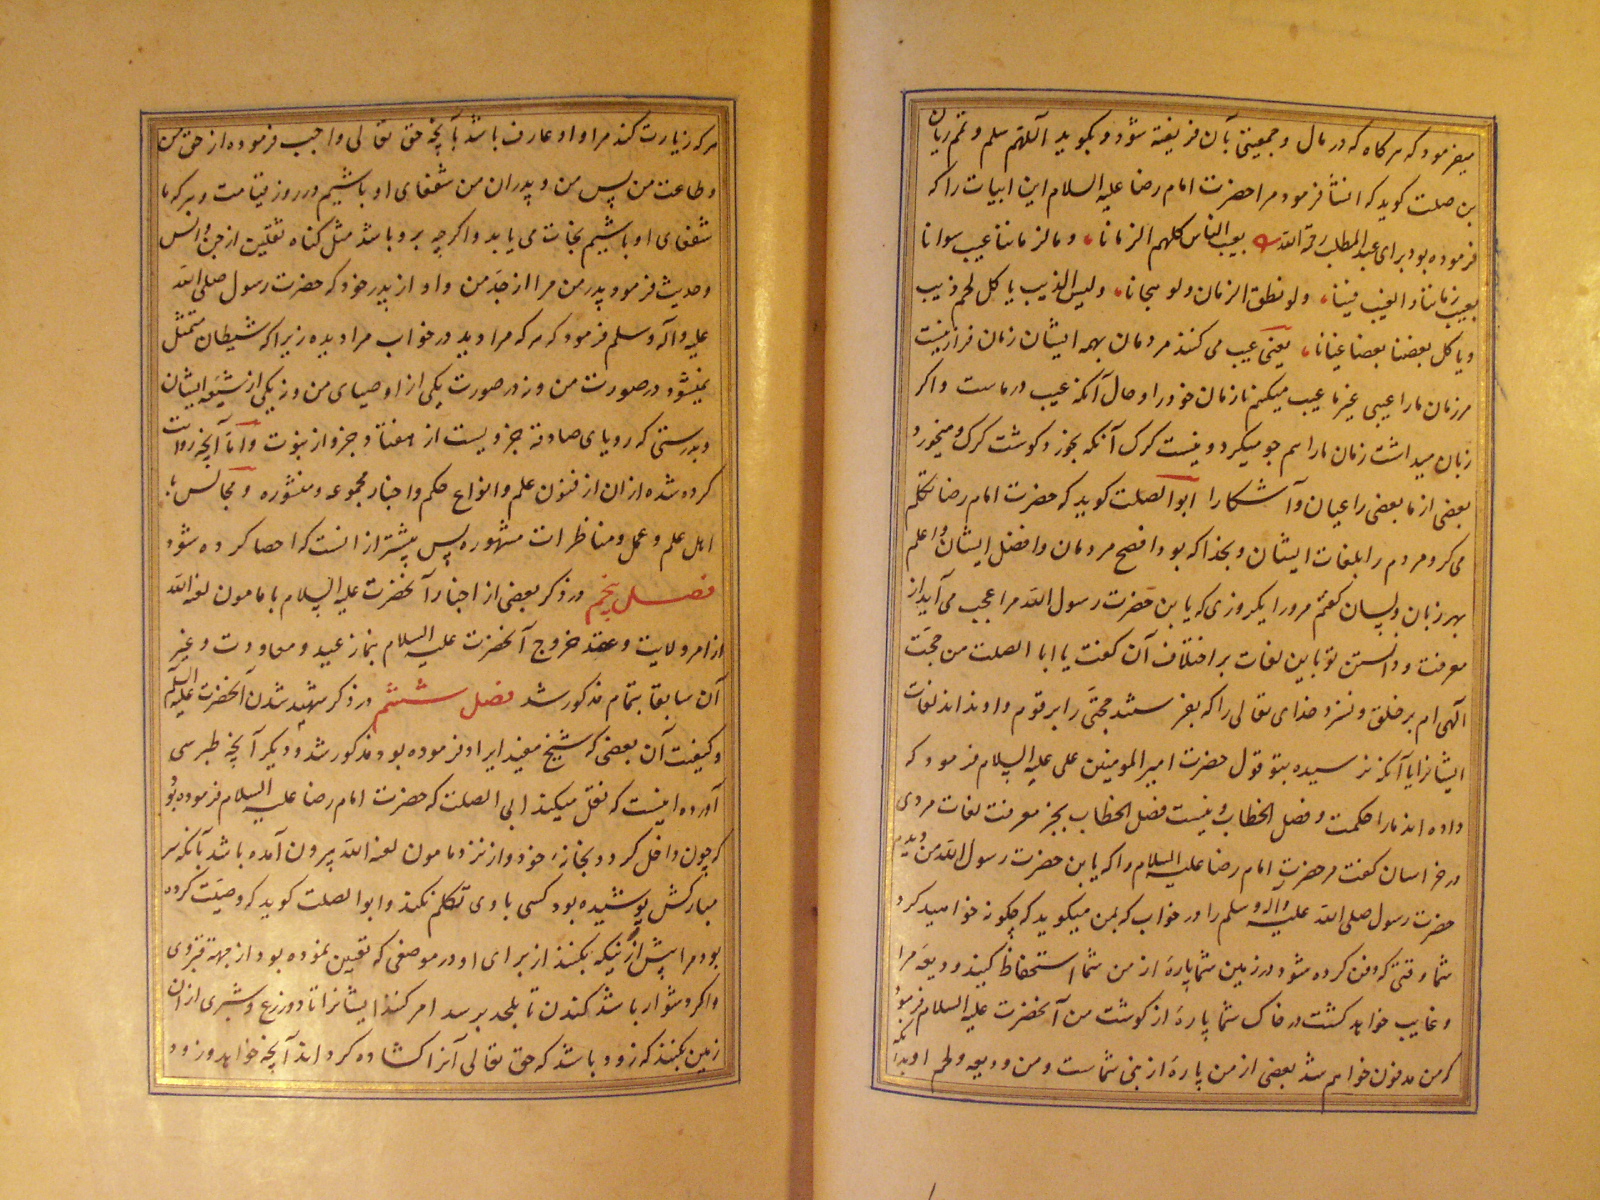 میفرمود که هرگاه که در مال و جمعیتی بآن فریفته شود و بگوید اللهم سلم و تمم ریان
بن صلت گوید که انشا فرمود مرا حضرت امام رضا علیه السلام این ابیات را که
فرموده بود برای عبد المطلب رحمة الله یعیب الناس کلهم الزمانا و ما لزماننا عیب سوانا
یعیب زماننا و العیب فینا ولو نطق الزمان و لو هجانا ولیس الذیب یاکل لحم ذیب
و یاکل بعضنا بعضا عیانا یعنی عیب می کنند مردمان همه ایشان زمان را و نیست
مر زمان ما را عیبی غیر ما عیب میکنیم ما زمان خود را و حال آنکه عیب در ماست و اگر
زبان میداشت زمان ما را هم هجو میکرد و نیست گرگ آنکه بخورد گوشت گرگ و میخورد
بعضی از ما بعضی را عیان و آشکارا ابو الصلت گوید که حضرت امام رضا تکلم
می کرد مردم را بلغات ایشان و بخدا که بود افصح مردمان و افضل ایشان و اعلم
بهر زبان و لسان گفتم مر او را یکروزی که یا بن حضرت رسول الله مرا عجب می آید از
معرفت و دانستن تو باین لغات بر اختلاف آن گفت یا ابا الصلت من حجت
الهی ام بر خلق و نسزد خدای تعالی را که بفرستد حجتی را بر قوم و او نداند لغات
ایشانرا یا آنکه نرسیده بتو قول حضرت امیر المومنین علی علیه السلام فرمود که
داده اند ما را حکمت و فصل الخطاب و نیست فصل الخطاب بجز معرفت لغات مردی
در خراسان گفت مر حضرت امام رضا علیه السلام را که یا بن حضرت رسول الله من دیدم
حضرت رسول صلی الله علیه و اله و سلم را در خواب که بمن میگوید که چگونه خواهید کرد
شما وقتی که دفن کرده شود در زمین شما پارهٔ از من شما استحفاظ کنید ودیعهٔ مرا
و غایب خواهد گشت در خاک شما پارهٔ از گوشت من آنحضرت علیه السلام فرمود
که من مدفون خواهم شد بعضی از من پارهٔ از نبی شماست و من ودیعه و لحم اوید
هرکه زیارت کند مرا و او عارف باشد بآنچه حق تعالی واجب فرموده از حق من
و طاعت من پس من و پدران من شفعای او باشیم در روز قیامت و هر که ما
شفعای او باشیم نجات می یابد و اگرچه بر و باشد مثل گناه ثقلین از جن و انس
و حدیث فرمود پدر من مرا از جد من و او از پدر خود که حضرت رسول صلی الله
علیه و آله وسلم فرمود که هر که مرا دید در خواب مرا دیده زیرا که شیطان متمثل
نمیشود در صورت من و نه در صورت یکی از اوصیای من و نه یکی از شیعه ایشان
و بدرستی که رویای صادقه جزویست از هفتاد جزو از نبوت و اما آنچه روایت
کرده شده از ان از فنون علم و انواع حکم و اخبار مجموعه و منثوره و مجالس با
اهل علم و عمل و مناظرات مشهوره پس بیشتر از انست که احصا کرده شود
فصل پنجم در ذکر بعضی از اخبار آنحضرت علیه السلام با مامون لعنه الله
از امر ولایت و عقد خروج آنحضرت علیه السلام بنماز عید و معاودت و غیر
آن سابقا بتمام مذکور شد فصل ششم در ذکر شهید شدن آنحضرت علیه السلم
و کیفیت آن بعضی که شیخ مفید ایراد فرموده بود مذکور شد و دیگر آنچه طبرسی
آورده اینست که نقل میکند ابی الصلت که حضرت امام رضا علیه السلام فرموده بود
که چون داخل گردد بخانهٔ خود و از نزد مامون لعنه الله بیرون آمده باشد بآنکه سر
مبارکش پوشیده بود کسی با وی تکلم نکند و ابو الصلت گوید که وصیت کرده
بود مرا پیش از اینکه بکنند از برای او در موضعی که تعیین نموده بود از جهة قبر وی
و اگر دشوار باشد کندن تا بلحد برسد امر کند ایشانرا تا دو زرع و شبری از ان
زمین بکنند که زود باشد که حق تعالی آنرا گشاده گرداند آنچه خواهد و زود